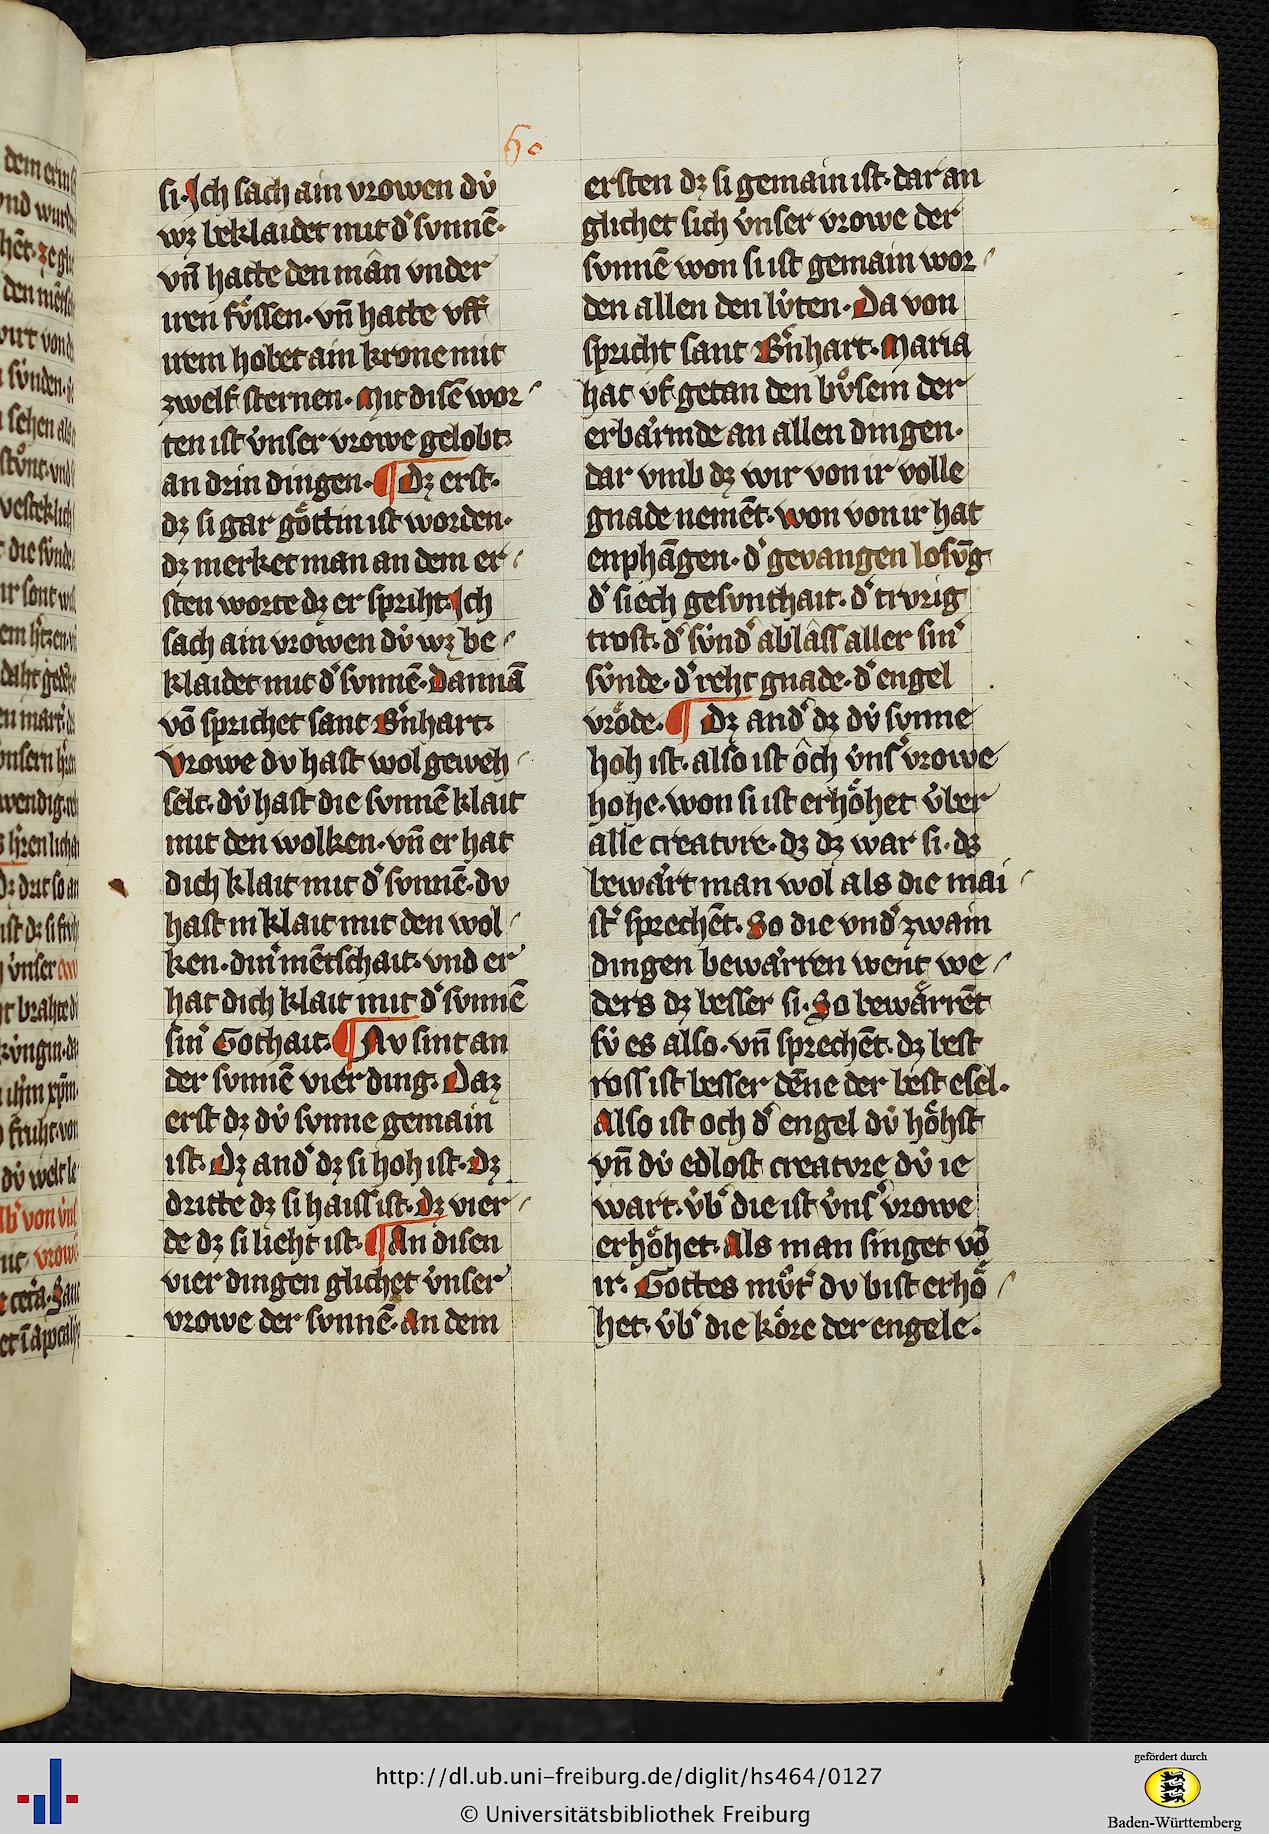 60
si. Ich sach ain vrowen dv̍
wz beklaidet mit d͛ svnnē.
vn̄ hatte den mân vnder
iren fv̍ssen. vn̄ hatte vff
irem hobet ain krone mit
zwelf sternen. Mit disē wor
ten ist v̍nser vrowe gelobt.
an drin dingen. ¶ Dz erst.
dz si gar go̍ttin ist worden.
dz merket man an dem er
sten worte dz er spriht. Ich
sach ain vrowen dv̍ wz be
klaidet mit d͛ svnnē. Dannā
vō sprichet sant B͛nhart.
Vrowe dv hast wol geweh
selt. dv̍ hast die svnnē klait
mit den wolken. vn̄ er hat
dich klait mit d͛ svnnē. dv
hast in klait mit den wol
ken. din͛ mētschait. vnd er
hat dich klait mit d͛ svnnē
sin͛ Gothait. ¶ Nv sint an
der svnnē vier ding. Daz
erst dz dv̍ svnne gemain
ist. Dz and͛ dz si hoh ist. Dz
dritte dz si haiss ist. Dz vier
de dz si lieht ist. ¶ An disen
vier dingen glichet v̍nser
vrowe der svnnē. An dem
ersten dz si gemain ist. dar an
glichet sich v̍nser vrowe der
svnnē won si ist gemain wor
den allen den lv̍ten. Da von
spricht sant B͛nhart. Maria
hat vf getan den bvͦsem der
erba̍rmde an allen dingen.
dar vmb dz wir von ir volle
gnade nemēt. won von ir hat
enphāgen. d͛ gevangen losv̄g
d͛ siech gesvnthait. d͛ trvrig
trost. d͛ sv̍nd͛ ablâss aller sin͛
sv̍nde. d͛ reht gnade. d͛ engel
vro̍de. ¶ Dz and͛ dz dv̍ svnne
hoh ist. also ist ôch v̍ns͛ vrowe
hohe. won si ist erho̍het v̍ber
alle creatvre. dz dz war si. dz
bewa̍rt man wol als die mai
st͛ sprechēt. So die vnd͛ zwain
dingen bewa̍rren went we
ders dz besser si. So bewa̍rrēt
sv̍ es also. vn̄ sprechēt. dz best
ross ist besser dēne der best esel.
Also ist och d͛ engel dv̍ ho̍hst
vn̄ dv̍ edlost creatvre dv̍ ie
wart. v̍b͛ die ist v̍ns͛ vrowe
erho̍het. Als man singet vō
ir. Gottes mvͦt͛ dv bist erho̍
het. v̍b͛ die ko̍re der engele.
http://dl.ub.uni-freiburg.de/diglit/hs464/0127
© Universitätsbibliothek Freiburg
gefördert durch
Baden-Württemberg